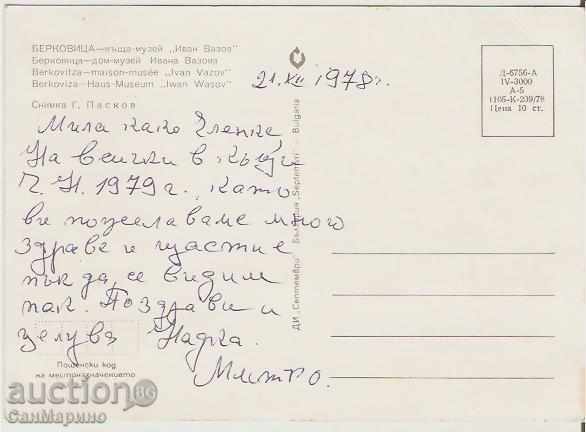 БЕРКОВИЦА—къща-музей „Иван Вазов"
Берковица—дом-музей Ивана Вазова
Berkovitza—maison-musée „Ivan Vazov"
Berkoviza—Haus-Museum „Iwan Wasow"
Снимка Г. Пасков
21.XII 1978 г.
Д-6756-А
IV-3000
А-5
1105-К-209/78
Цена 10 ст.
Мила како Ленке,
На всички в къщи
Ч.Н. 1979 г., като
ви пожелаваме много
здраве и щастие
пък да се видим
пак. Поздрави и
целува Надка.
Митко.
ДИ „Септември" България „Septemvri" Bulgaria
Пощенски код
на местоназначението
auction BG
СанМарино